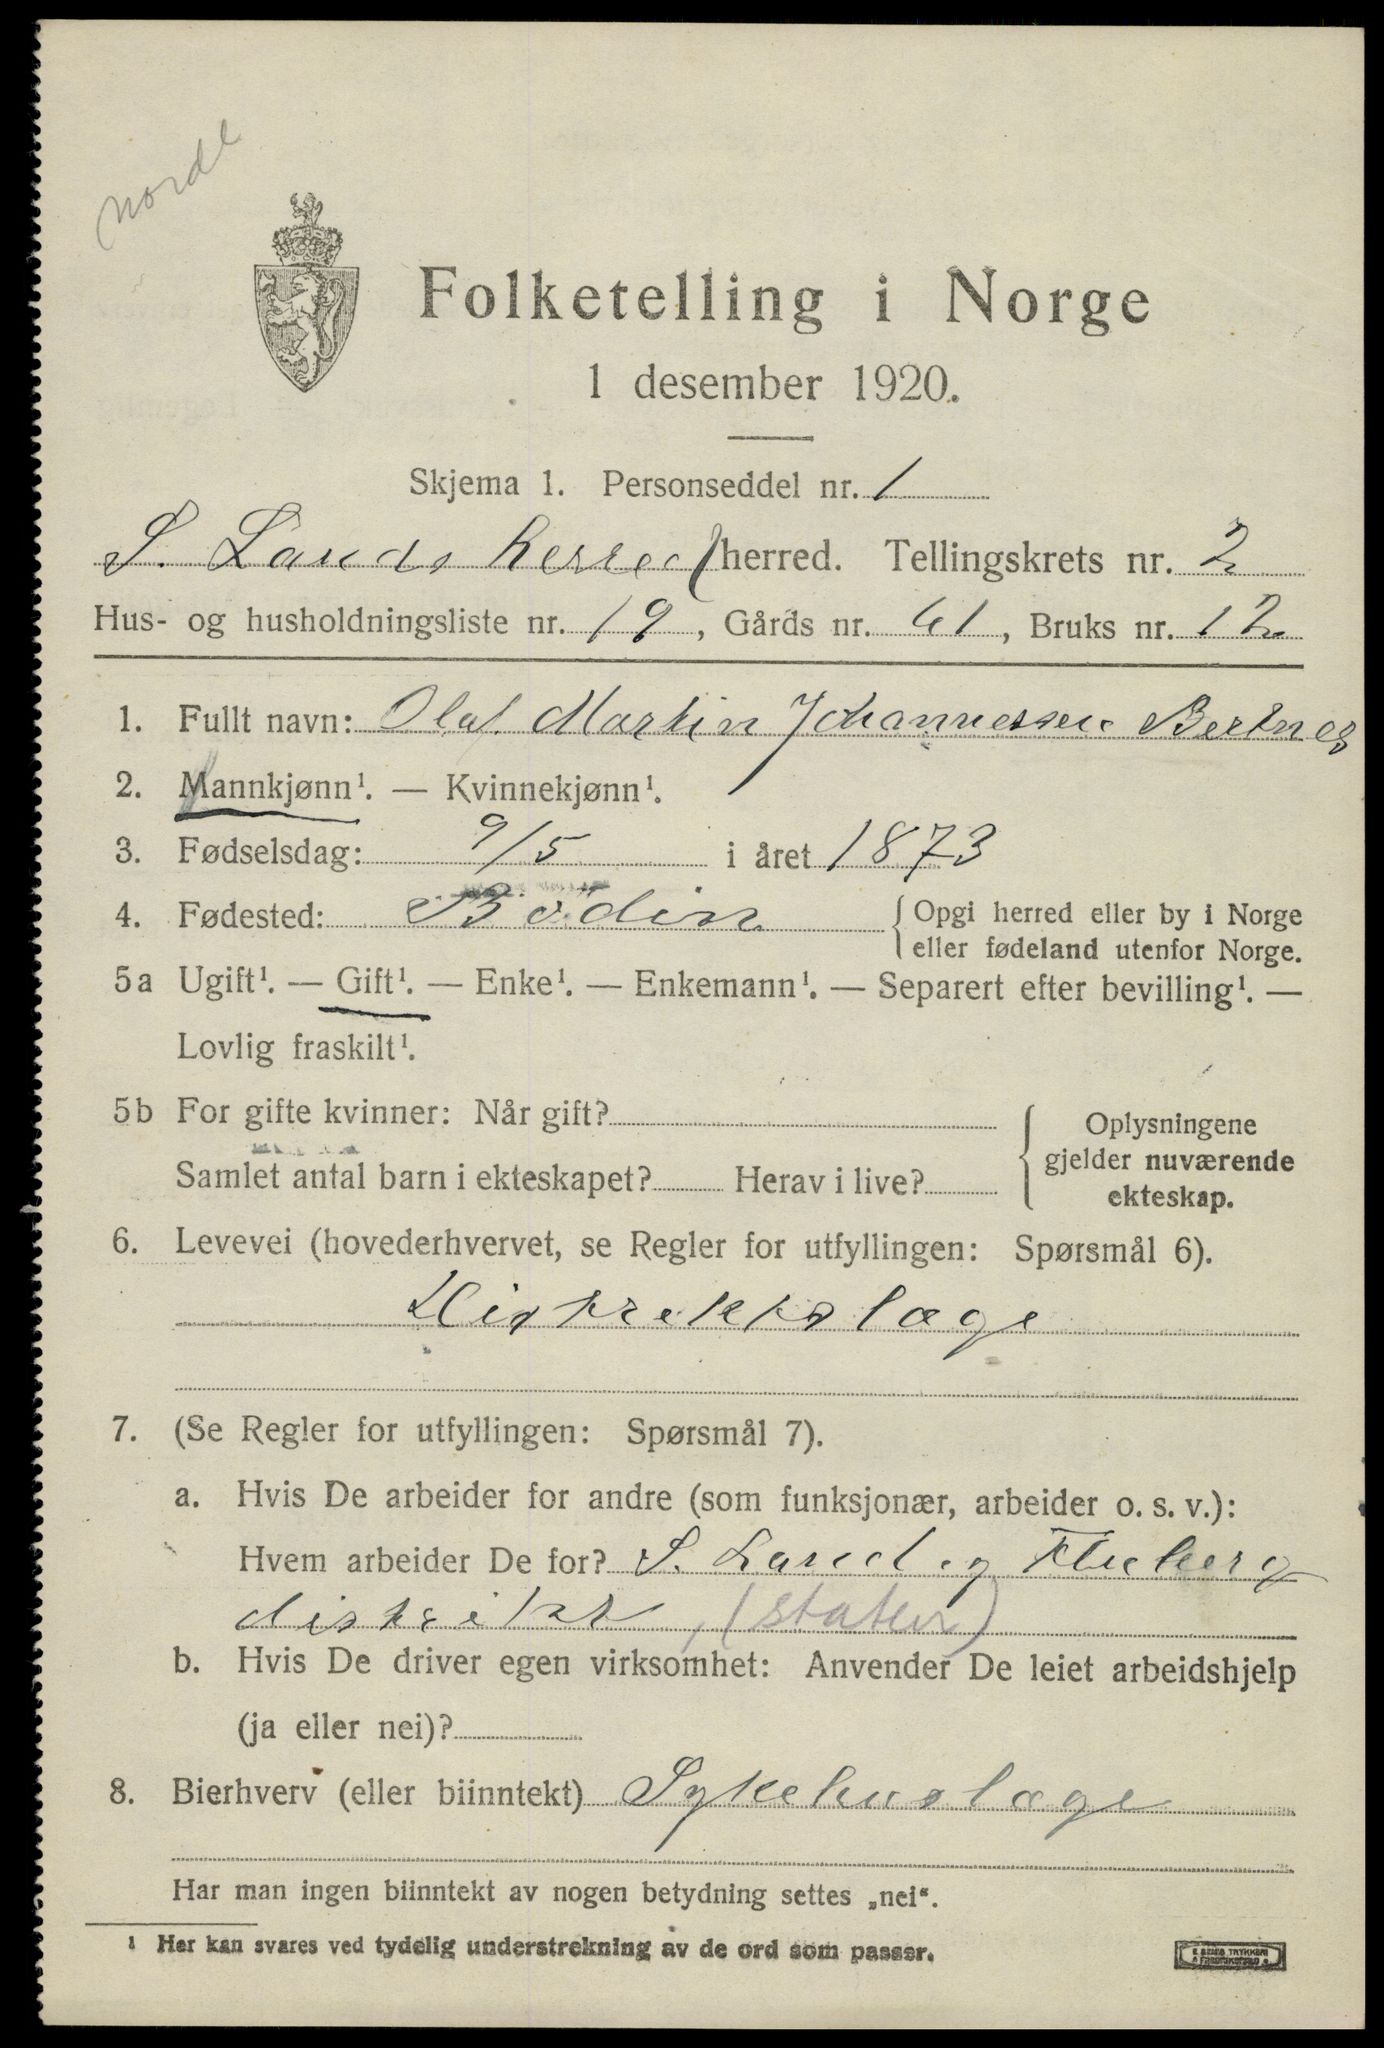 Nordl
Folketelling i Norge
1 desember 1920.
Skjema 1. Personseddel nr. 1
S. Lands herred herred. Tellingskrets nr. 2
Hus- og husholdningsliste nr. 19, Gårds nr. 61, Bruks nr. 12
1. Fullt navn: Olaf Martin Johannessen Bertnes
2. Mannkjønn¹. — Kvinnekjønn¹.
3. Fødselsdag: 9/5 i året 1873
4. Fødested: Bodin { Opgi herred eller by i Norge
eller fødeland utenfor Norge.
5a Ugift¹. — Gift¹. — Enke¹. — Enkemann¹. — Separert efter bevilling¹. —
Lovlig fraskilt¹.
5b For gifte kvinner: Når gift?
Samlet antal barn i ekteskapet? Herav i live?
{ Oplysningene
gjelder nuværende
ekteskap.
6. Levevei (hovederhvervet, se Regler for utfyllingen: Spørsmål 6).
Distrektslæge
7. (Se Regler for utfyllingen: Spørsmål 7).
a. Hvis De arbeider for andre (som funksjonær, arbeider o. s. v.):
Hvem arbeider De for? S. Land og Fluberg
distrikt, (staten)
b. Hvis De driver egen virksomhet: Anvender De leiet arbeidshjelp
(ja eller nei)?
8. Bierhverv (eller biinntekt) Sykehuslæge
Har man ingen biinntekt av nogen betydning settes „nei“.
¹ Her kan svares ved tydelig understrekning av de ord som passer.